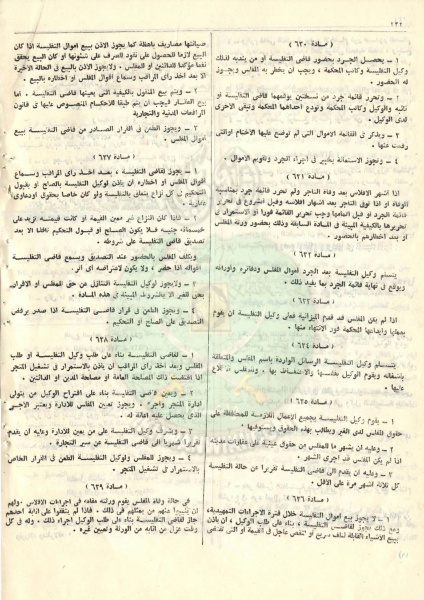 ٢٤٢
( مــادة ٦٢٠ )
١ – يحصل الجرد بحضور قاضى التفليسة أو من يندبه لذلك
وكيل التفليسة وكاتب المحكمة ، ويجب أن يخطر به المفلس ويجوز
له الحضور .
٢ – وتحرر قائمة جرد من نسختين يوقعهما قاضى التفليسة
المحكمة وتبقى الأخرى
٣ – ويذكر فى القائمة الأموال التى لم توضع عليها الأختام أو التى
رفعت عنها .
٤ – وتجوز الاستعانة بخبير فى اجراء الجرد وتقويم الأموال .
( مــادة ٦٢١ )
اذا شهر الافلاس بعد وفاة التاجر ولم تحرر قائمة جرد بمناسبة
الوفاة أو اذا توفى التاجر بعد اشهار افلاسه وقبل الشروع فى تحرير
قائمة الجرد أو قبل اتمامها وجب تحرير القائمة فورا أو الاستمرار فى
تحريرها بالكيفية المبينة فى المادة السابقة وذلك بحضور ورثة المفلس
أو بعد اخطارهم بالحضور .
( مــادة ٦٢٢ )
يتسلم وكيل التفليسة بعد الجرد أموال المفلس ودفاتره وأوراقه
ويوقع فى نهاية قائمة الجرد بما يفيد ذلك .
( مــادة ٦٢٣ )
اذا لم يكن المفلس قد قدم الميزانية فعلى وكيل التفليسة أن يقوم
بعملها وايداعها المحكمة فور الانتهاء منها .
( مــادة ٦٢٤ )
يتسلم وكيل التفليسة الرسائل الواردة باسم المفلس والمتعلقة
بأشغاله ويقوم الوكيل بفضها والاحتفاظ بها . وللمفلس الاطلاع
عليها .
( مــادة ٦٢٥ )
١ – يقوم وكيل التفليسة بجميع الأعمال اللازمة للمحافظة على
حقوق المفلس لدى الغير ويطالب بهذه الحقوق ويستوفيها .
٢ – وعليه أن يشهر ما للمفلس من حقوق عينية على عقارات مدينيه
اذا لم يكن المفلس قد أجرى الشهر .
٣ – وعليه أن يقدم الى قاضى التفليسة تقريرا عن حالة التفليسة
كل ثلاثة أشهر مرة على الأقل .
( مــادة ٦٢٦ )
١ – لا يجوز بيع أموال التفليسة خلال فترة الاجراءات التمهيدية ،
ومع ذلك يجوز لقاضى التفليسة ، بناء على طلب الوكيل ، أن يأذن
ببيع الأشياء القابلة لتلف سريع أو لنقص عاجل فى القيمة أو التى تقتضى
صيانتها مصاريف باهظة كما يجوز الاذن ببيع أموال التفليسة اذا كان
البيع لازما للحصول على نقود للصرف على شئونها أو كان البيع يحقق
نفعا مؤكدا للدائنين أو المفلس . ولا يجوز الاذن بالبيع فى الحالة الأخيرة
الا بعد أخذ رأى المراقب وسماع أقوال المفلس أو اخطاره بالبيع .
٢ – ويتم بيع المنقول بالكيفية التى يعينها قاضى التفليسة ، أما
بيع العقار فيجب أن يتم طبقا للأحكام المنصوص عليها فى قانون
المرافعات المدنية والتجارية
٣ – ويجوز الطعن فى القرار الصادر من قاضى التفليسة ببيع
أموال المفلس .
( مــادة ٦٢٧ )
١ – يجوز لقاضى التفليسة ، بعد أخذ رأى المراقب وسماع
أقوال المفلس أو اخطاره ، أن يأذن لوكيل التفليسة بالصلح أو بقبول
التحكيم فى كل نزاع يتعلق بالتفليسة ولو كان خاصا بحقوق أو دعاوى
عقارية .
٢ – فاذا كان النزاع غير معين القيمة أو كانت قيمته تزيد على
خمسمائة جنيه فلا يكون الصلح أو قبول التحكيم نافذا الا بعد
تصديق قاضى التفليسة على شروطه .
ويكلف المفلس بالحضور عند التصديق ويسمع قاضى التفليسة
أقواله اذا حضر ، ولا يكون لاعتراضه أى أثر .
٣ – ولا يجوز لوكيل التفليسة التنازل عن حق للمفلس أو الاقرار
بحق للغير الا بالشروط المبينة فى هذه المادة .
٤ – ويجوز الطعن فى قرار قاضى التفليسة اذا صدر برفض
التصديق على الصلح أو التحكيم .
( مــادة ٦٢٨ )
١ – لقاضى التفليسة بناء على طلب وكيل التفليسة أو طلب
المفلس وبعد أخذ رأى المراقب أن يأذن بالاستمرار فى تشغيل المتجر
اذا اقتضت ذلك المصلحة العامة أو مصلحة المدين أو الدائنين .
٢ – ويعين قاضى التفليسة بناء على اقتراح الوكيل من يتولى
ادارة المتجر وأجره . ويجوز تعيين المفلس للادارة ويعتبر الأجر
الذى يحصل عليه اعانة له .
٣ – ويشرف وكيل التفليسة على من يعين للادارة وعليه أن يقدم
تقريرا شهريا الى قاضى التفليسة عن سير التجارة .
٤ – ويجوز للمفلس ولوكيل التفليسة الطعن فى القرار الخاص
بالاستمرار فى تشغيل المتجر .
( مــادة ٦٢٩ )
فى حالة وفاة المفلس يقوم ورثته مقامه فى اجراءات الافلاس . ولهم
أن ينيبوا عنهم من يمثلهم فى ذلك . فاذا لم يتفقوا على انابة أحدهم
جاز لقاضى التفليسة بناء على طلب الوكيل اجراء ذلك ، وله فى كل
وقت عزل من أنابه من الورثة وتعيين غيره .